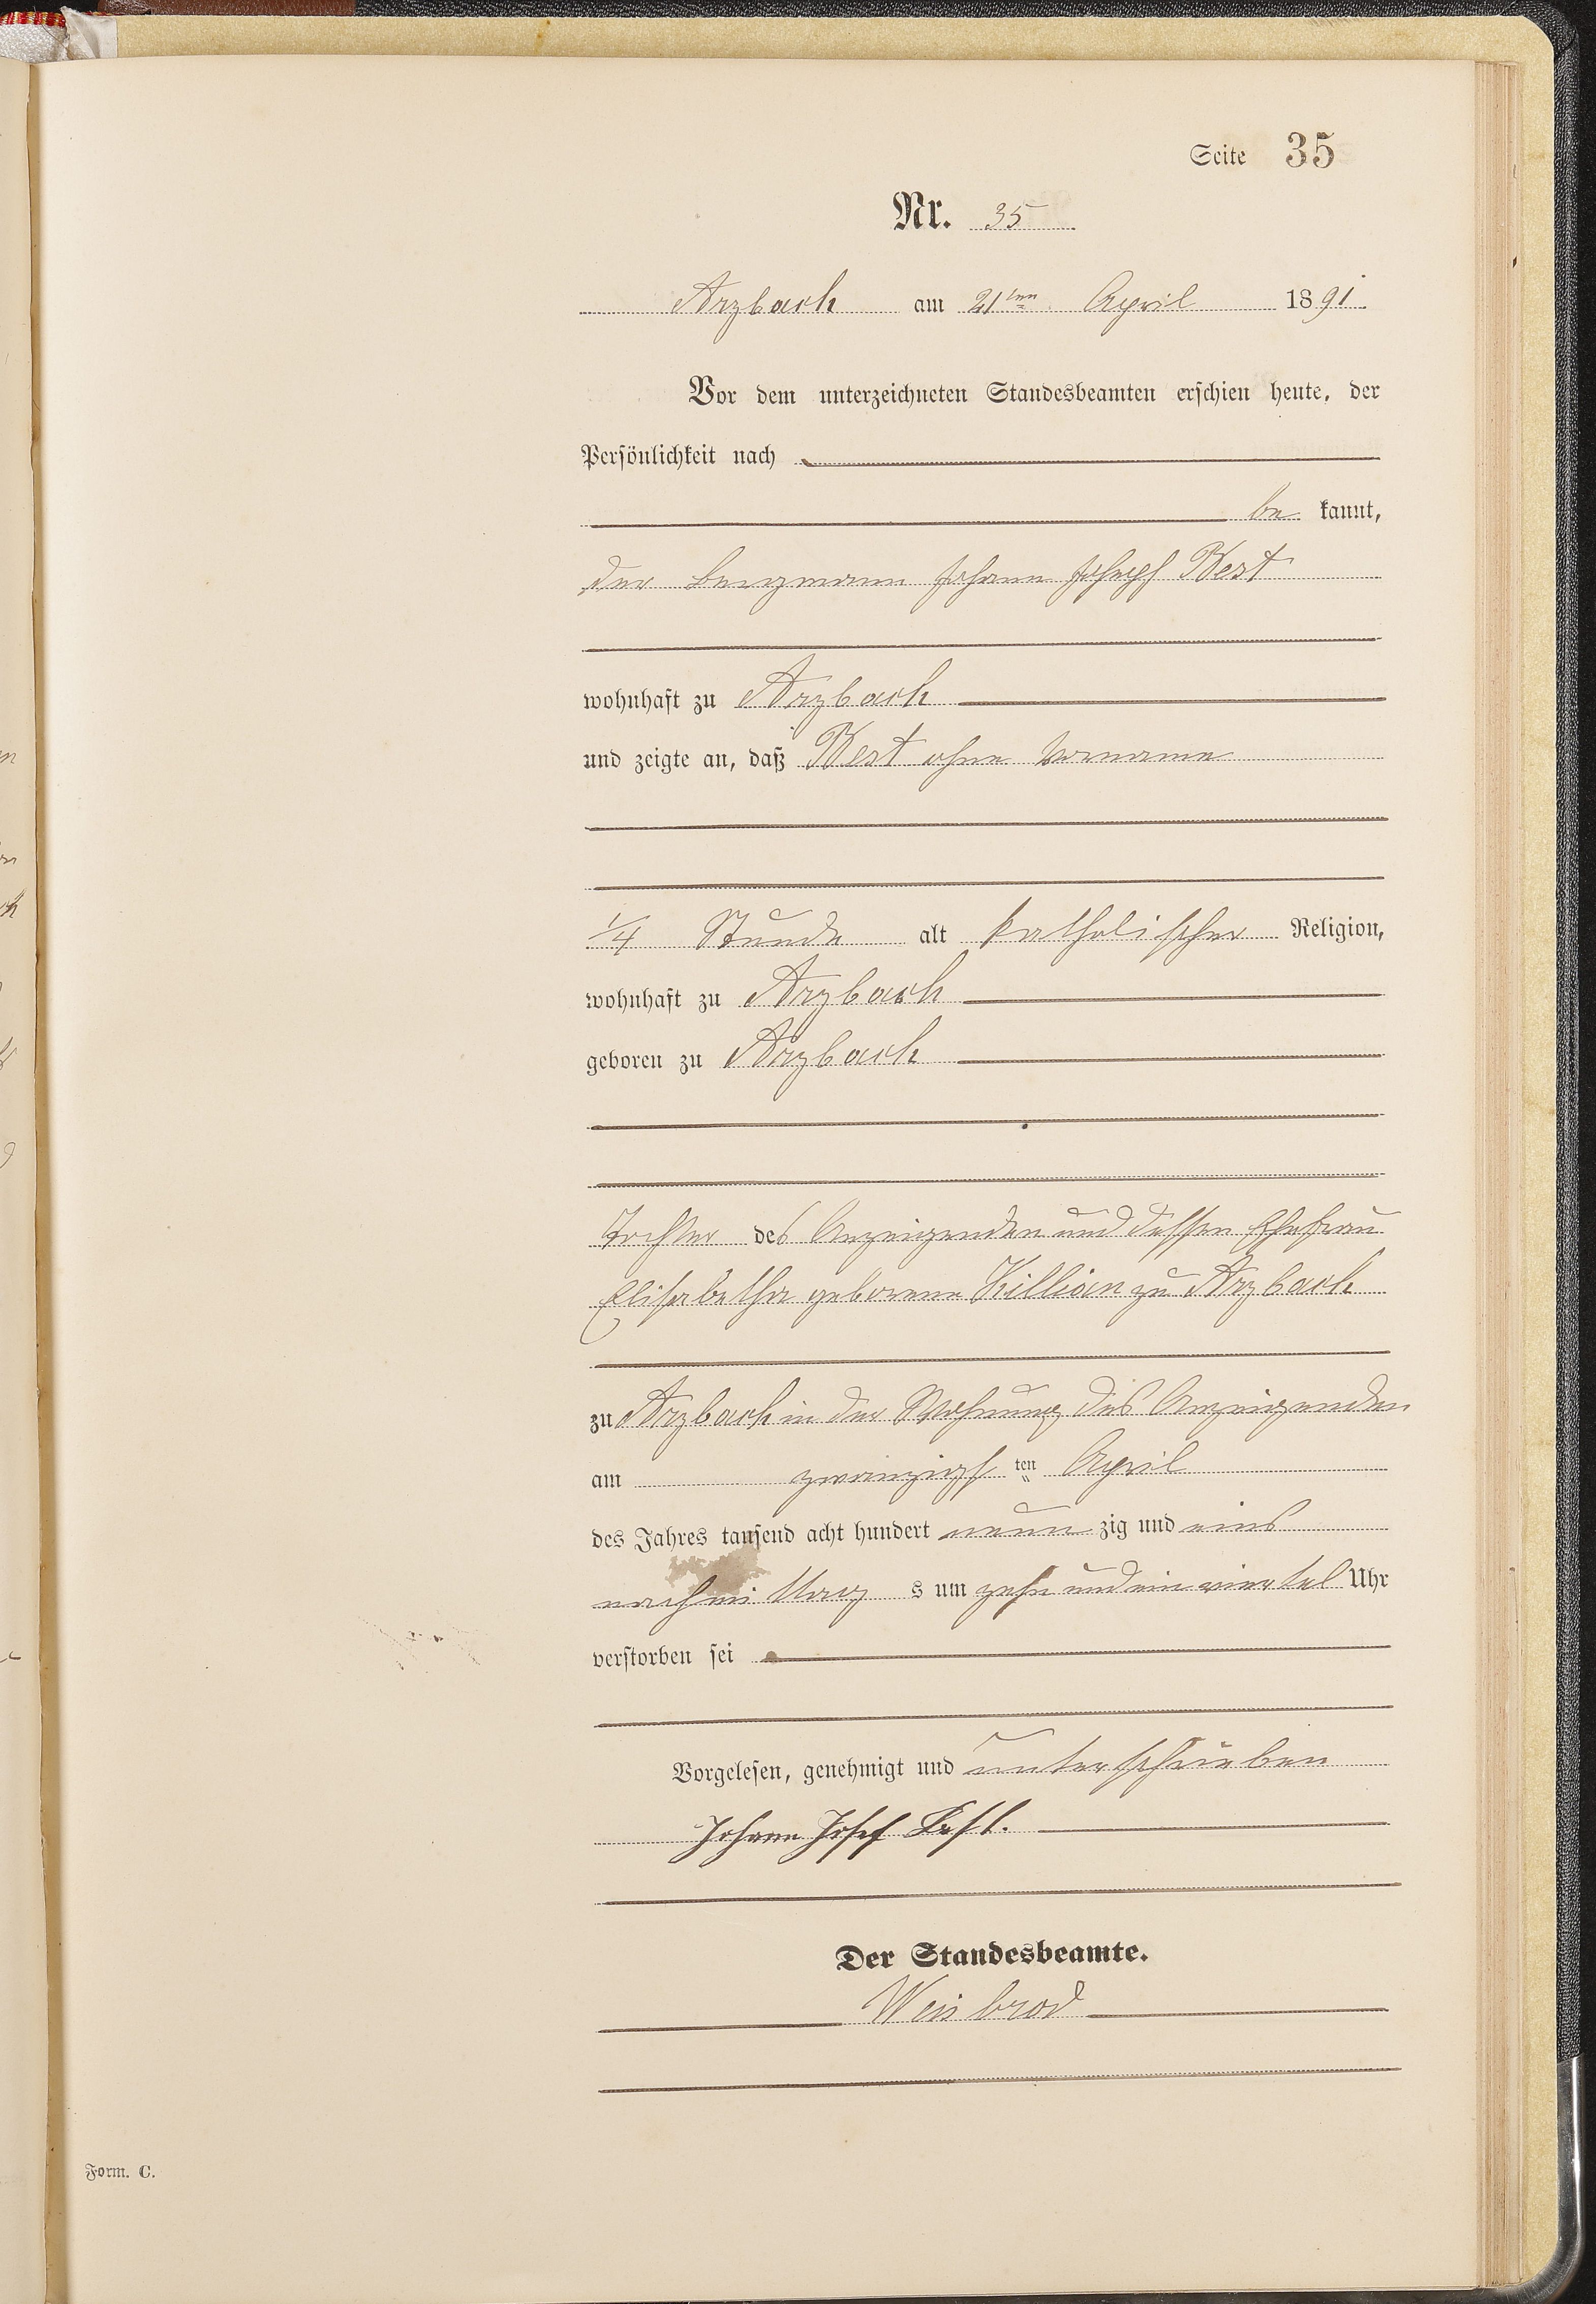 Seite 35
Nr. 35
Arzbach am 21ten April 1891
Vor dem unterzeichneten Standesbeamten erschien heute, der
Persönlichkeit nach
be kannt,
der Bergmann Johann Joseph Best
wohnhaft zu Arzbach
und zeigte an, daß Best ohne Vorname
1/4 Stunde alt katholischer Religion,
wohnhaft zu Arzbach
geboren zu Arzbach
Tochter des Anzeigenden und dessen Ehefrau
Elisabetha geborene Killian zu Arzbach
zu Arzbach in der Wohnung des Anzeigenden
am zwanzigsten April
des Jahres tausend acht hundert neunzig und eins
nachmittags um zehn und ein viertel Uhr
verstorben sei
Vorgelesen, genehmigt und unterschrieben
Johann Josef Best.
Der Standesbeamte.
Weisbrod
Form. C.